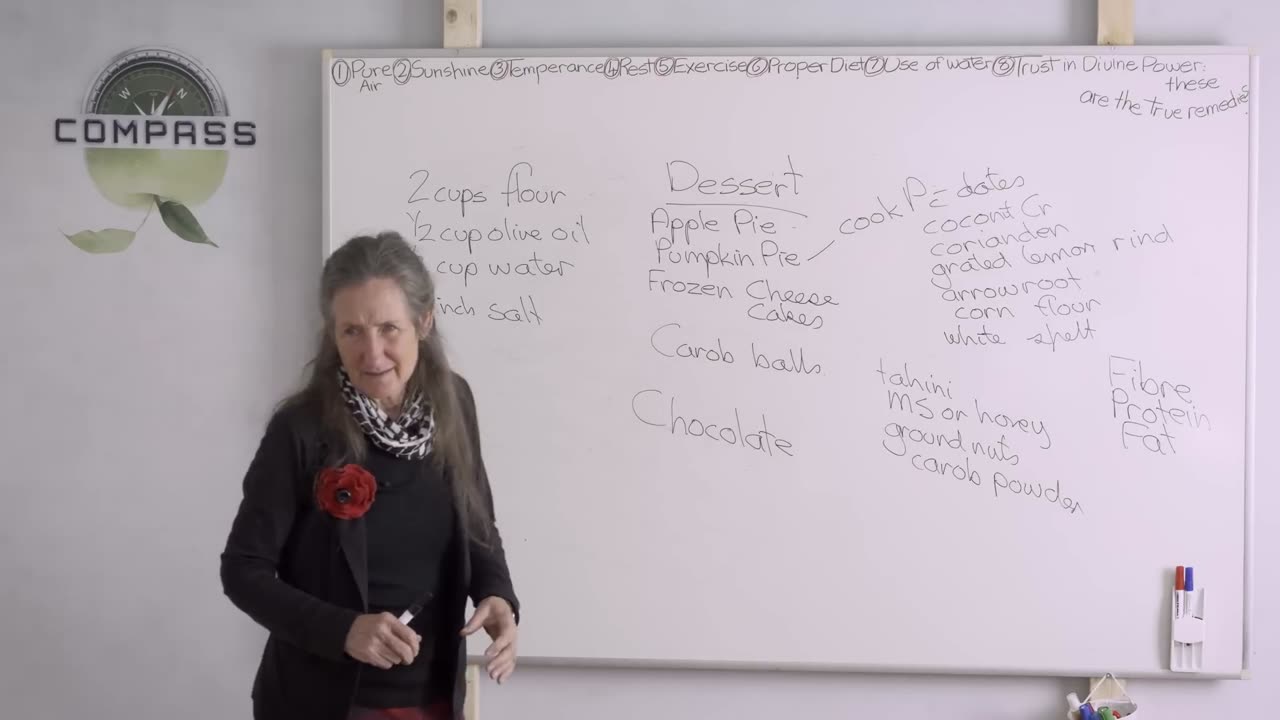 W N
COMPASS
① Pure ② Sunshine ③ Temperance ④ Rest ⑤ Exercise ⑥ Proper Diet ⑦ Use of water ⑧ Trust in Divine Power:
Air
these
are the true remedies.
2 cups flour
1/2 cup olive oil
cup water
inch salt
Dessert
Apple Pie
Pumpkin Pie
Frozen Cheese
Cakes
Carob balls
Chocolate
cook P = dates
coconut Cr
coriander
grated lemon rind
arrowroot
corn flour
white spelt
tahini
MS or honey
ground nuts
carob powder
Fibre
Protein
Fat